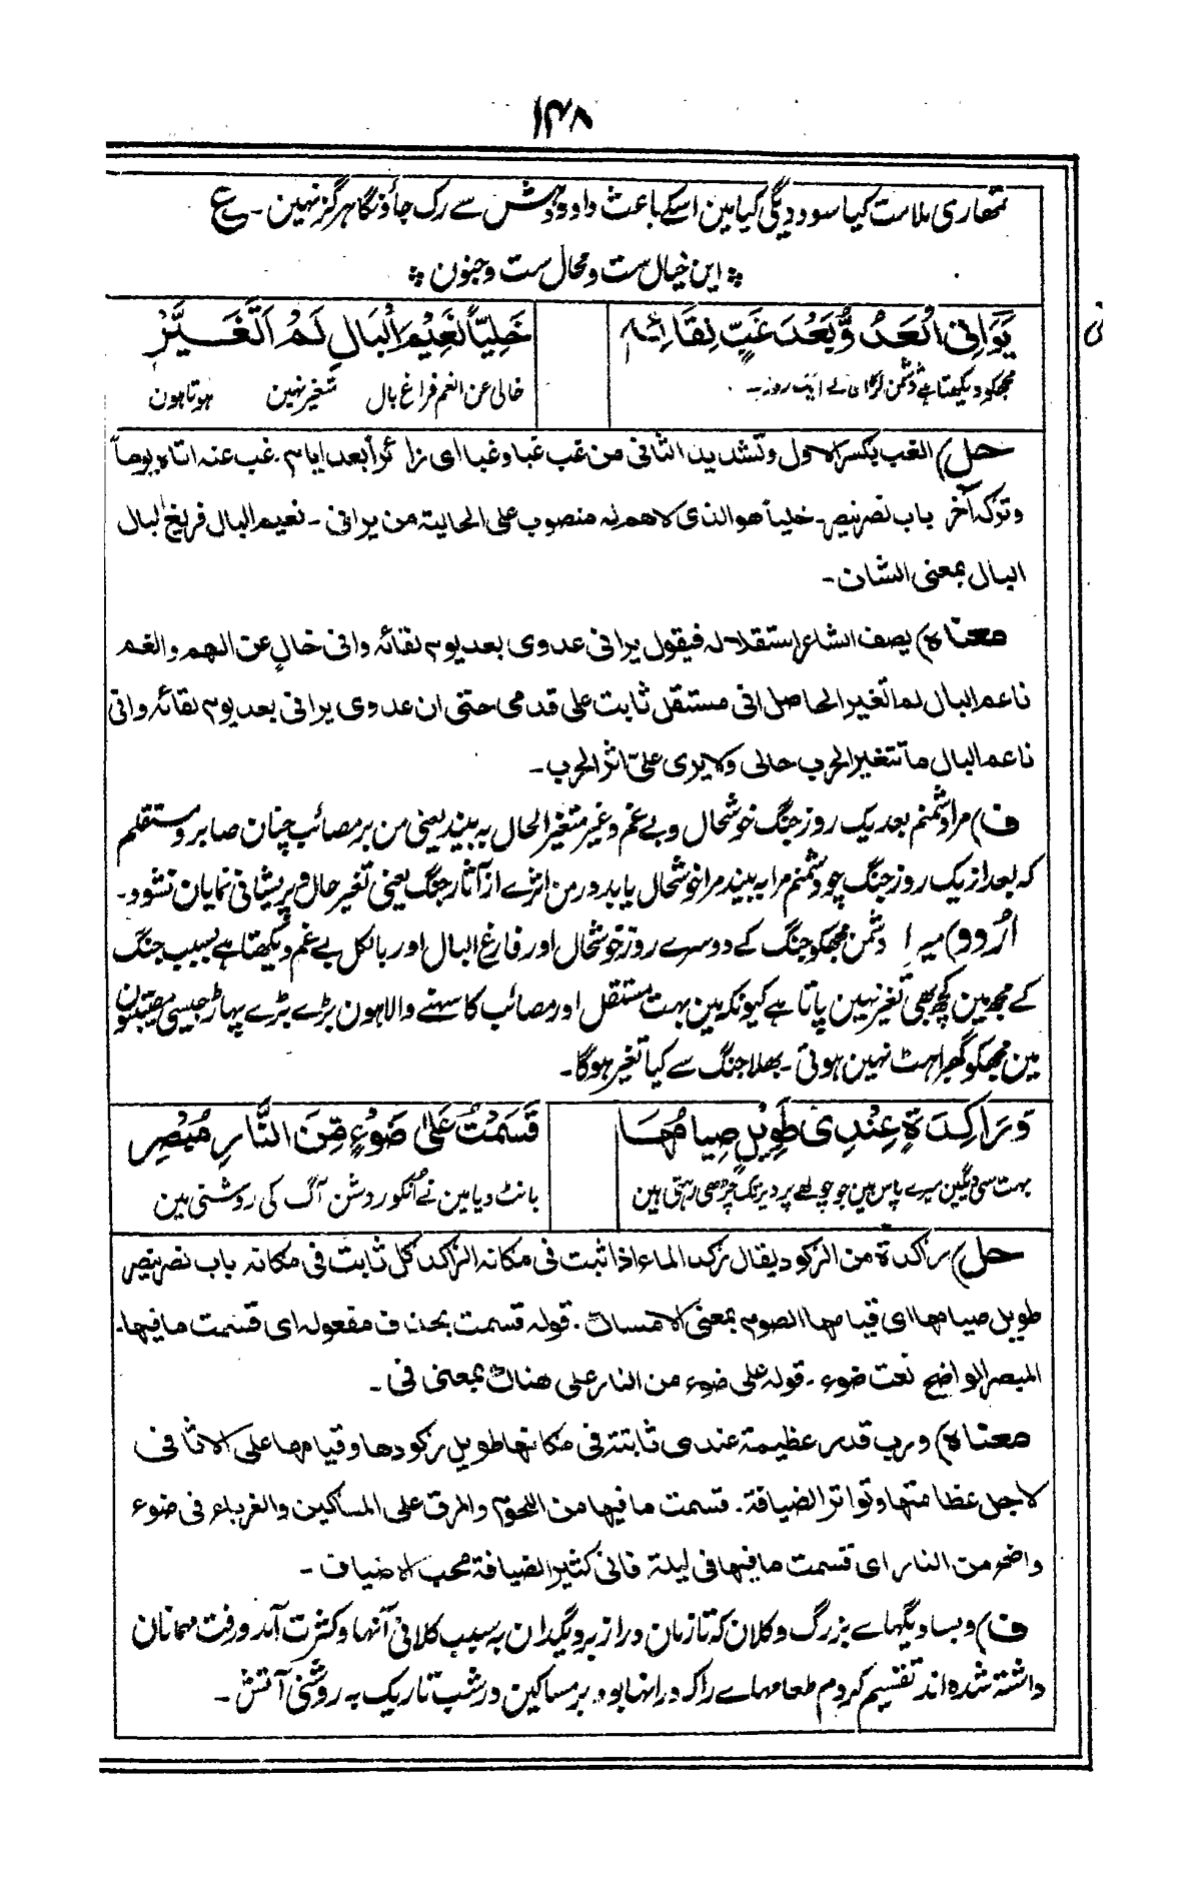 ۱۴۸
تمھاری ملامت کیا سود دیگی کیا مین اسکے باعث داد و دہش سے رک جاؤنگا ہرگز نہین۔ ع
؞ این خیال ست و محال ست و جنون ؞
يَرَانِى الْعَدُوُّ بَعْدَ غِبِّ لِقَائِهٖ
خَلِيًّا نَعِيْمَ الْبَالِ لَمْ اَتَغَيَّرْ
مجھکو دیکھتا ہے دشمن لڑائی کے ایک روز۔
خالی عن الغم فراغ بال متغیر نہین ہوتا ہون
حل) الغب بكسر الاول وتشديد الثانى من غب غبا وغبا اى زار غرا بعد ايام۔ غب عنه اتاه يوما
وتركه آخر باب نصر ينصر۔ خليا هو الذى لا هم له منصوب على الحالية من يرانى۔ نعيم البال فريغ البال
البال بمعنى الشان۔
معناه) يصف الشاعر استقلاله فيقول يرانى عدوى بعد يوم لقائه وانى خالٍ عن الهم والغم
ناعم البال لم اتغير الحاصل انى مستقل ثابت على قدمى حتى ان عدوى يرانى بعد يوم لقائه وانى
ناعم البال ما تتغير الحرب حالى ولا يرى علىّ اثر الحرب۔
ف) مرا دشمنم بعد یک روز جنگ خوشحال و بے غم و غیر متغیر الحال بہ بیند یعنی من بر مصائب چنان صابر و مستقلم
کہ بعد از یک روز جنگ چو دشمنم مرا بہ بیند مرا خوشحال یابد و در من اثرے از آثار جنگ یعنی تغیر حال و پریشانی نمایان نشود۔
اردو) میرا دشمن مجھکو جنگ کے دوسرے روز خوشحال اور فارغ البال اور بالکل بے غم دیکھتا ہے بسبب جنگ
کے مجھ مین کچھ بھی تغیر نہین پاتا ہے کیونکہ مین بہت مستقل اور مصائب کا سہنے والا ہون بڑے بڑے پہاڑ جیسی مصیبتون
مین مجھکو گھبراہٹ نہین ہوتی۔ بھلا جنگ سے کیا تغیر ہوگا۔
وَرَاكِدَةٍ عِنْدِىْ طَوِيْلٍ صِيَامُهَا
قَسَمْتُ عَلٰى ضَوْءٍ مِّنَ النَّارِ مُبْصِرِ
بہت سی دیگین میرے پاس ہین جو چولھے پر دیر تک چڑھی رہتی ہین
بانٹ دیا مین نے انکو روشن آگ کی روشنی مین
حل) راكدة من الركود يقال ركد الماء اذا ثبت فى مكانه الراكد كل ثابت فى مكانه باب نصر ينصر
طويل صيامها اى قيامها الصوم بمعنى الامساك۔ قوله قسمت بحذف مفعوله اى قسمت ما فيها۔
المبصر الواضح نعت ضوء۔ قوله على ضوء من النار على هناك بمعنى فى۔
معناه) ورب قدر عظيمة عندى ثابتة فى مكانها طويل ركودها وقيامها على الاثافى
لاجل عظامتها وتواتر الضيافة۔ قسمت ما فيها من اللحوم والمرق على المساكين والغرباء فى ضوء
واضح من النار اى قسمت ما فيها فى ليلة فانى كثير الضيافة محب الاضياف۔
ف) و بسا دیگہاے بزرگ و کلان کہ تا زمان دراز بر دیگدان بہ سبب کلانی آنہا و کثرت آمد و رفت مہمانان
داشتہ شدہ اند تقسیم کردم طعامہاے را کہ در انہا بود۔ بر مساکین در شب تاریک بہ روشنی آتش۔